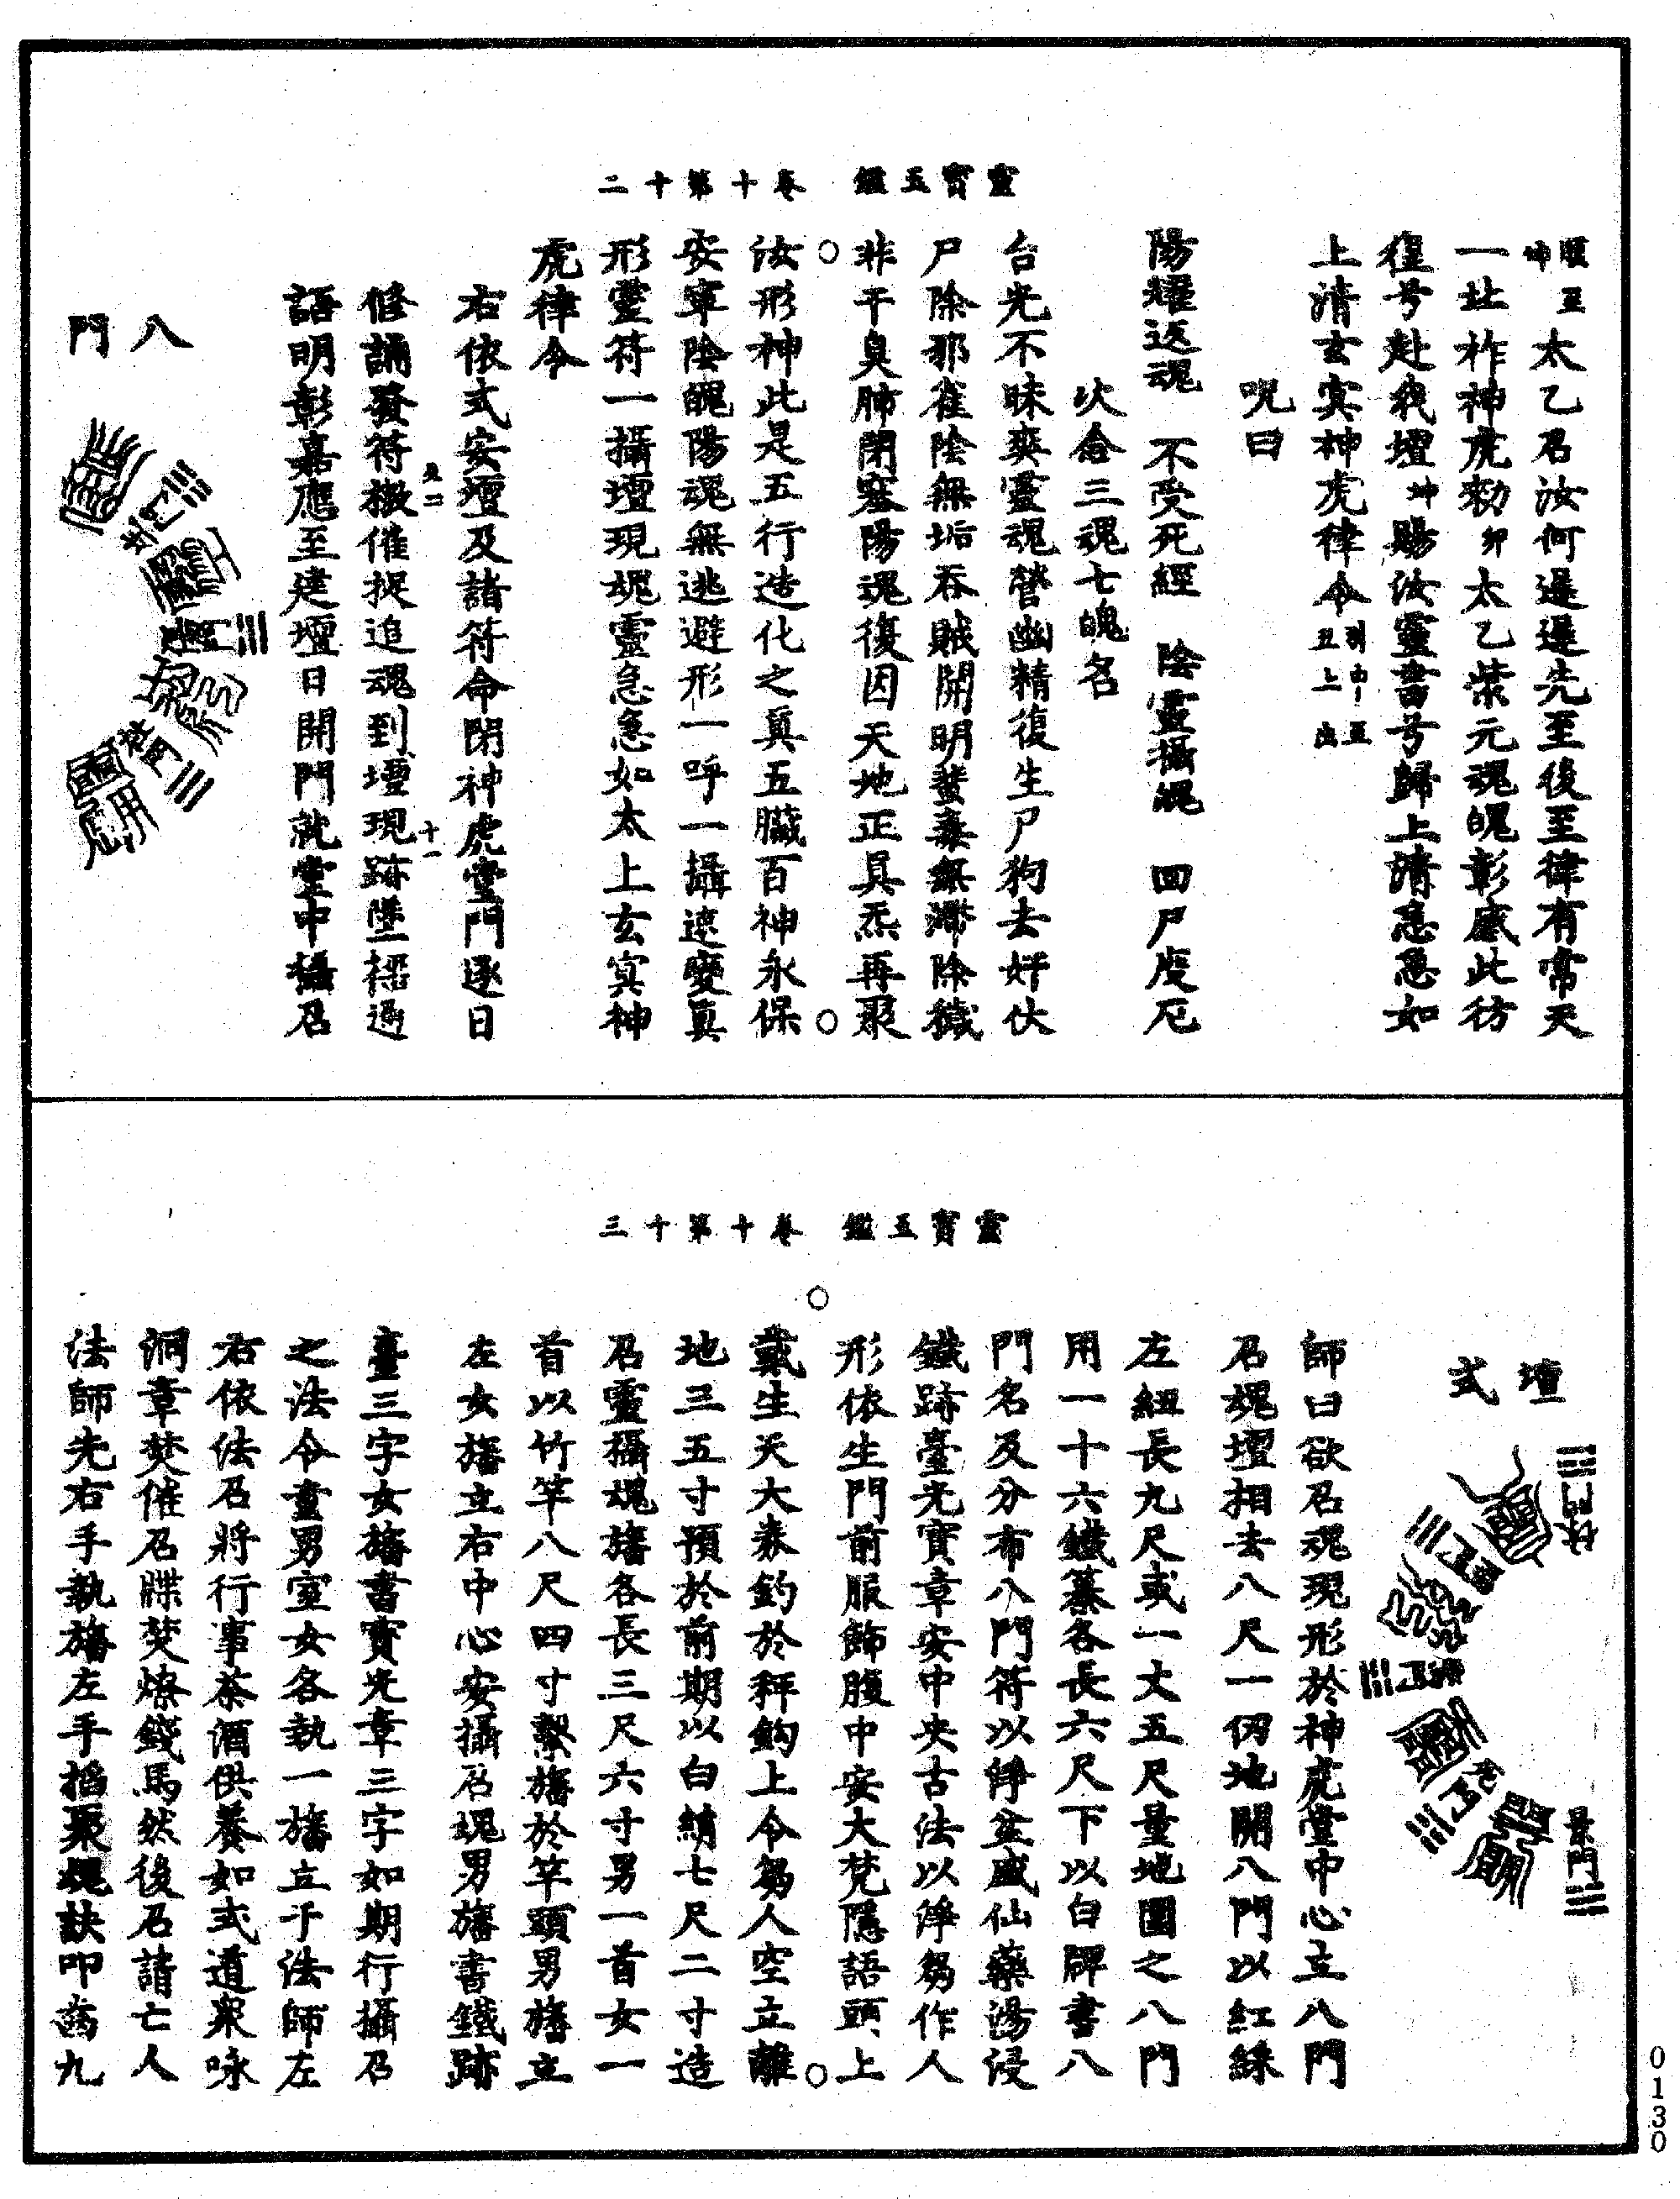 靈寶玉鑑　卷十第十二
太乙召汝何遲遲先至後至律有常天
一址柞神虎勑卯太乙紫元魂魄彰感此彷
徨兮赴我壇坤賜汝靈書兮歸上清急急如
上清玄冥神虎律令
呪曰
陽耀返魂　不受死經　陰靈攝魄　回尸度厄
次念三魂七魄名
台光不昧爽靈魂營幽精復生尸狗去奸伏
尸除邪雀陰無垢吞賊開明蜚毒無滯除穢
非干臭肺閉塞陽魂復因天地正具炁再聚
汝形神此是五行造化之真五臟百神永保
安寧陰魄陽魂無逃避形一呼一攝速變真
形靈符一攝壇現魂靈急急如太上玄冥神
虎律令
右依式安壇及諸符命閉神虎堂門逐日
修誦發符檄催捉追魂到壇現跡墜
語明彰嘉應至建壇日開門就堂中攝召
八
門
靈寶玉鑑　卷十第十三
壇
式
休門
景門
師曰欲召魂現形於神虎堂中心立八門
召魂壇相去八尺一仞地開八門以紅綵
左紐長九尺或一丈五尺量地圍之八門
用一十六鐵纂各長六尺下以白牌書八
門名及分布八門符以淨盆盛仙藥湯浸
鐵跡臺光寶章安中央古法以淨芻作人
形依生門前服飾腹中安大梵隱語頭上
戴生天大券釣於秤鈎上令芻人空立離
地三五寸預於前期以白綃七尺二寸造
召靈攝魂旛各長三尺六寸男一首女一
首以竹竿八尺四寸繫旛於竿頭男旛立
左女旛立右中心安攝召魂男旛書鐵跡
臺三字女旛書寶光章三字如期行攝召
之法令童男室女各執一旛立于法師左
右依法召將行事茶酒供養如式道眾咏
洞章焚催召牒焚燎錢馬然後召諸亡人
法師先右手執旛左手掐聚魂訣叩齒九
0130